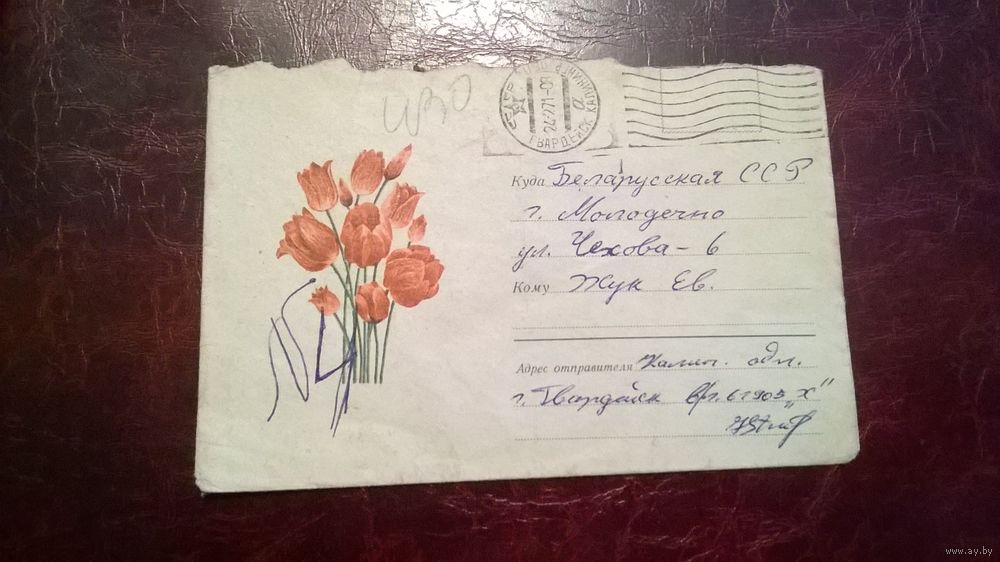 СССР
24271-09
а
ГВАРДЕЙСК КАЛИНИНГ
Куда Беларусская ССР
г. Молодечно
ул. Чехова - 6
Кому Жук Ев.
Адрес отправителя Калин. обл.
г. Гвардейск в/ч. 61903 „Х"
www.ay.by